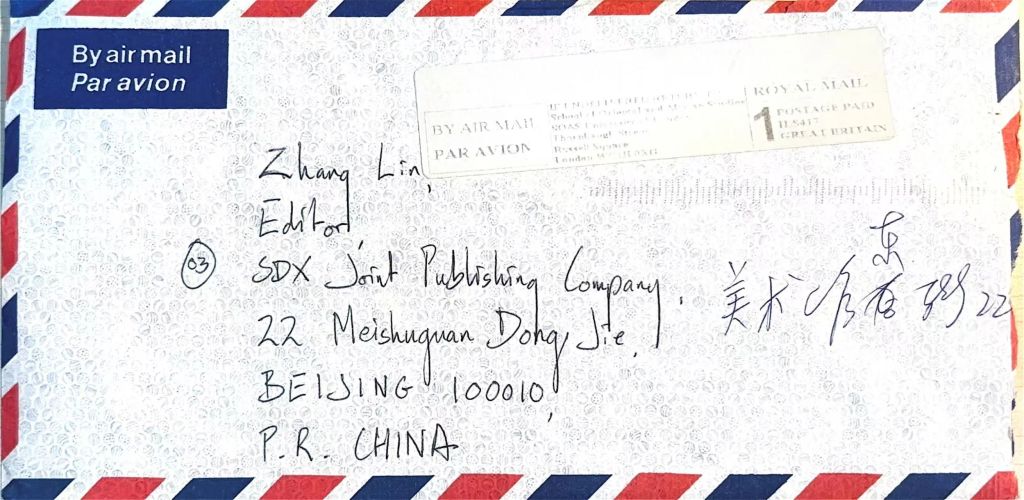 By air mail
Par avion
BY AIR MAIL
PAR AVION
School of Oriental and African Studies
Russell Square
London
ROYAL MAIL
1
POSTAGE PAID
GREAT BRITAIN
Zhang Lin,
Editor,
03
SDX Joint Publishing Company,
22 Meishuguan Dong Jie,
BEIJING 100010,
P.R. CHINA
东
美术 22